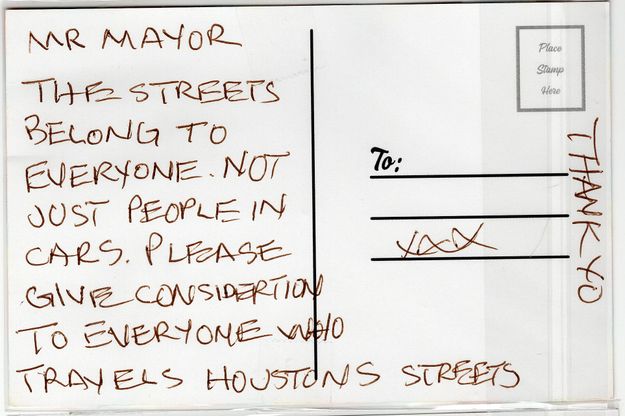 MR MAYOR
THE STREETS
BELONG TO
EVERYONE. NOT
JUST PEOPLE IN
CARS. PLEASE
GIVE CONSIDERTION
TO EVERYONE WHO
TRAVELS HOUSTONS STREETS
Place
Stamp
Here
To:
XXX
THANK YO